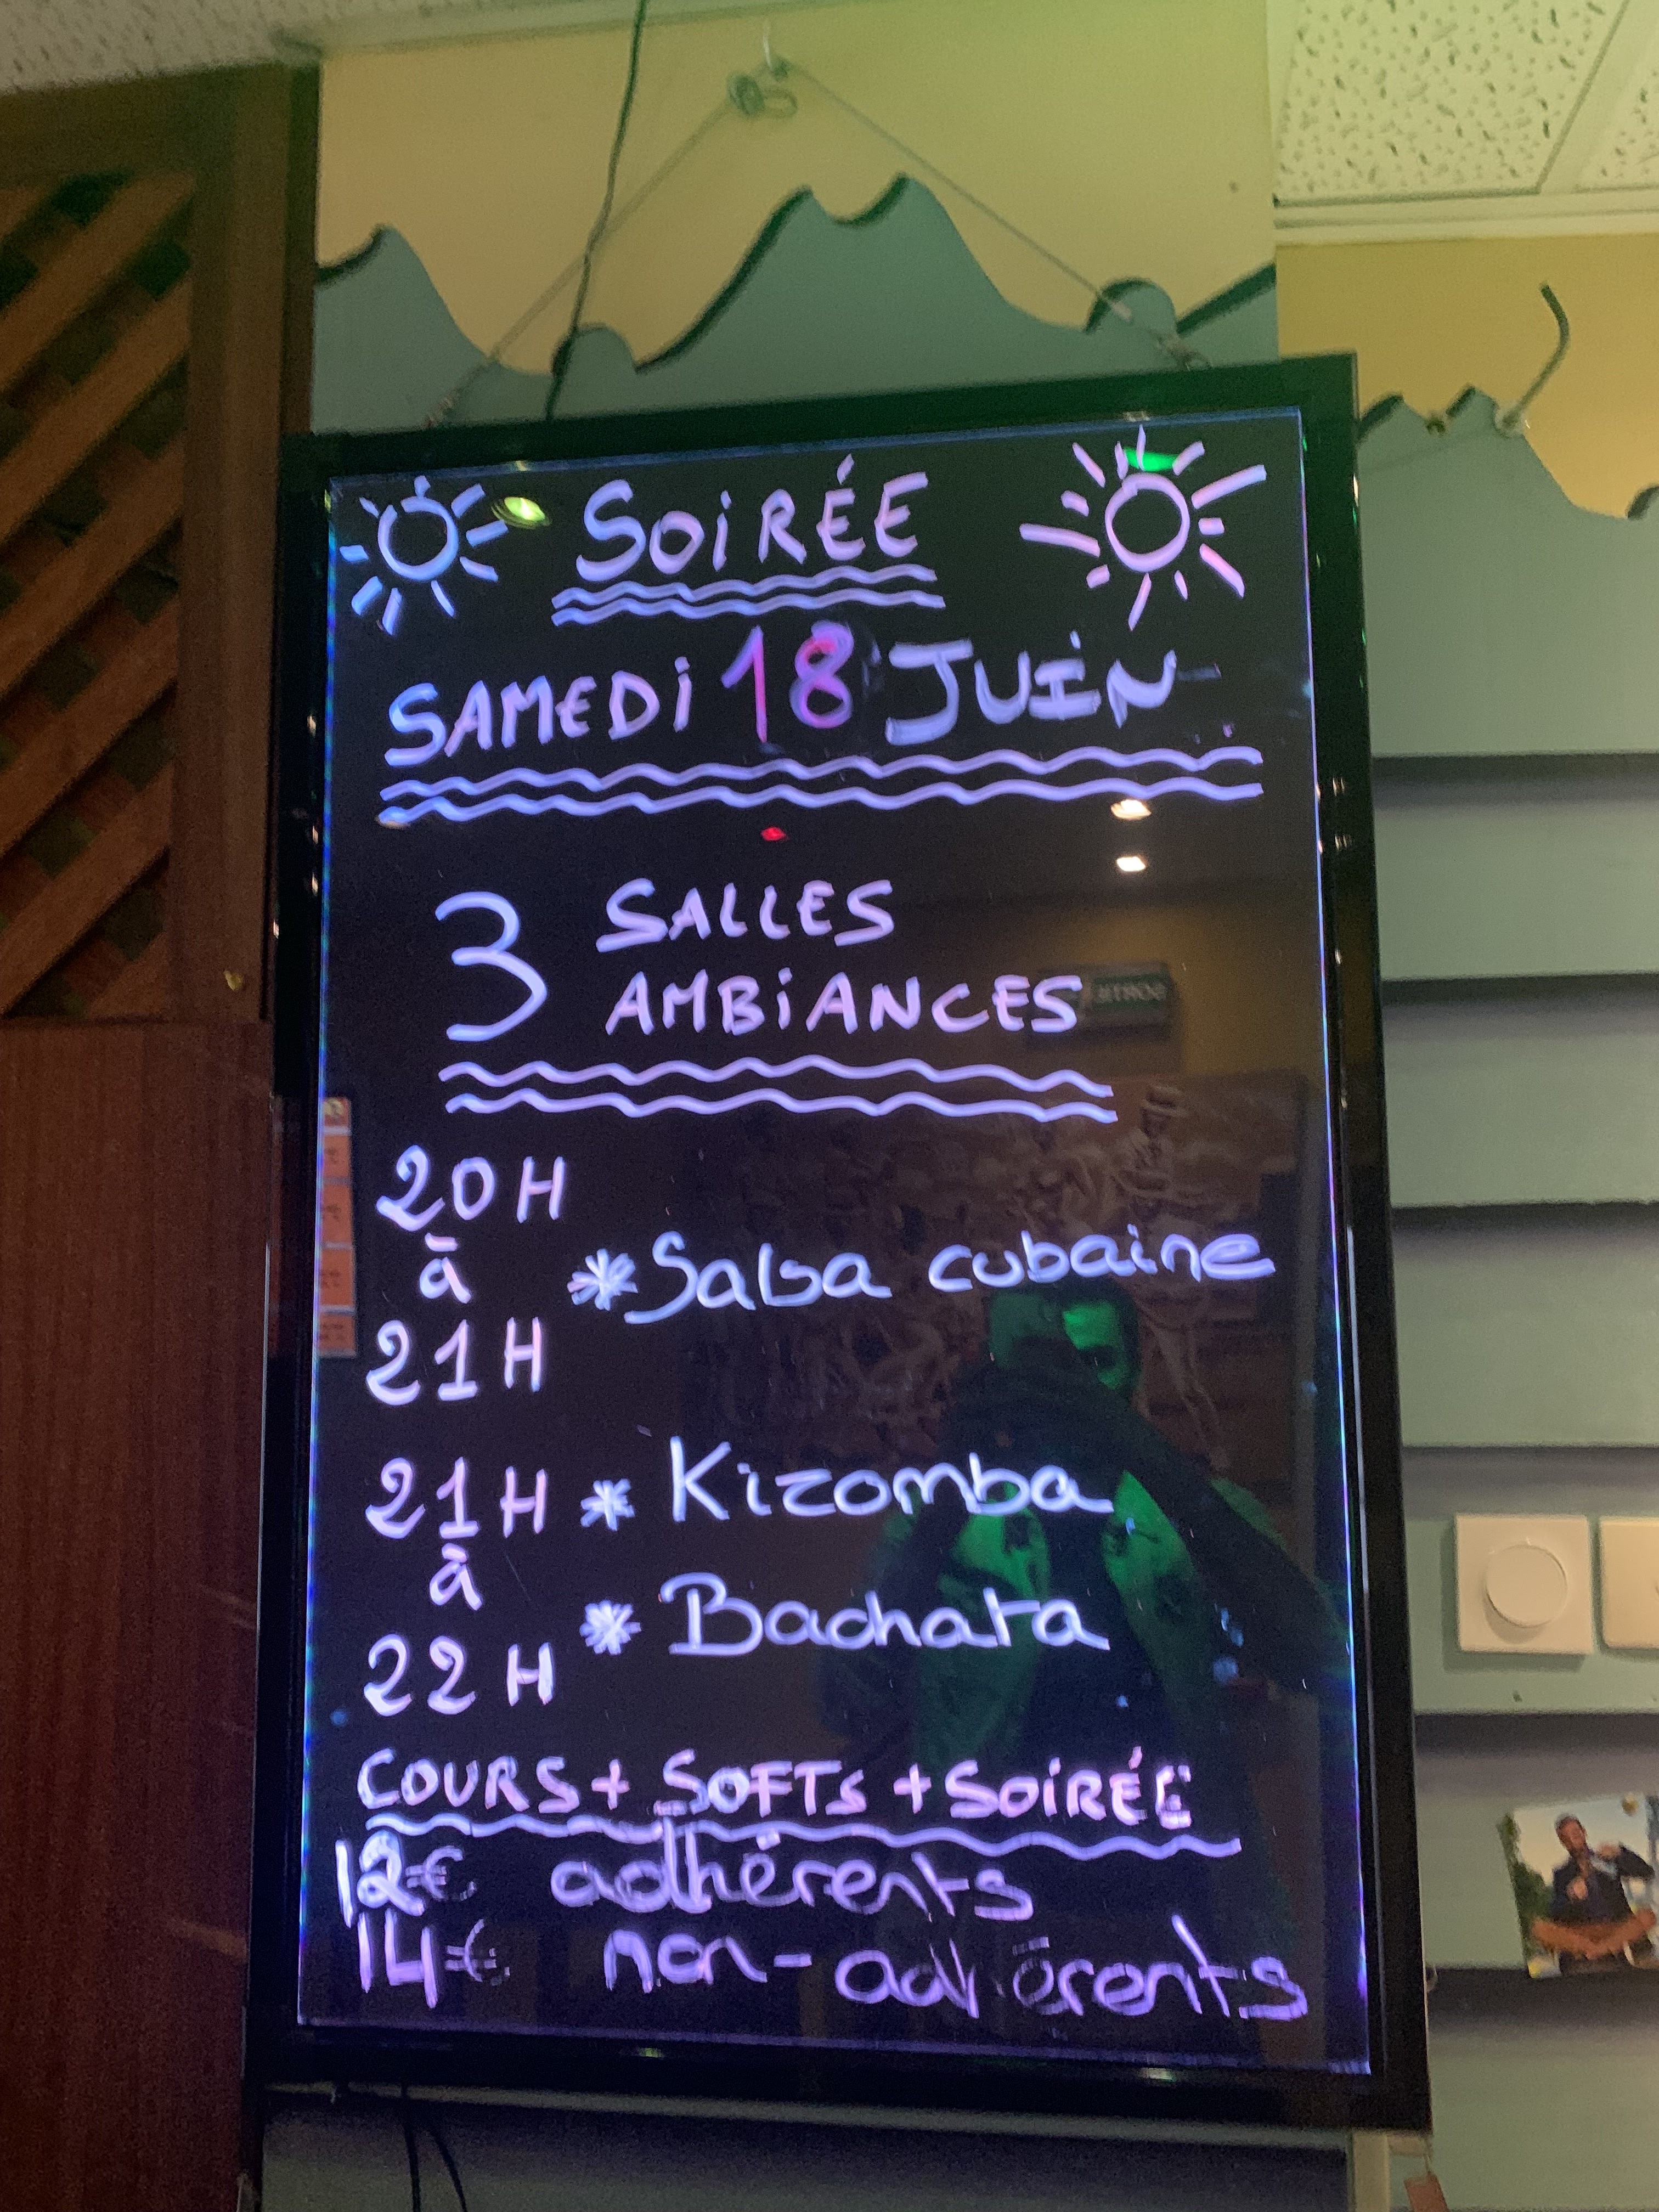 SOIRÉE
SAMEDI 18 JUIN
3 SALLES
AMBIANCES
20H
à
* Salsa cubaine
21H
21H * Kizomba
à
* Bachata
22H
COURS + SOFTS + SOIRÉE
12€ adhérents
14€ non-adhérents
SORTIE